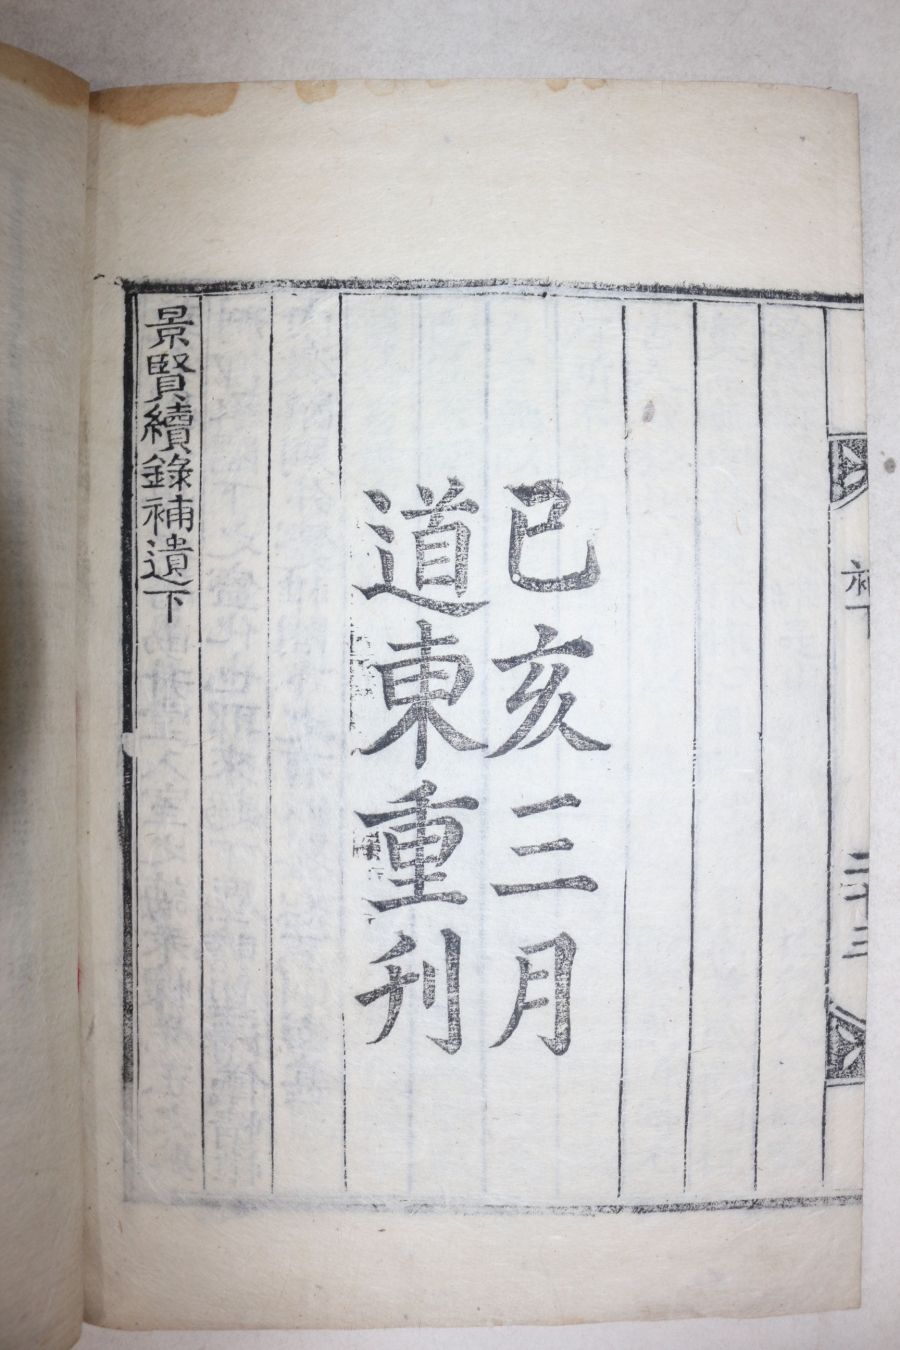 補下
二十三
己亥三月
道東重刊
景賢續錄補遺下